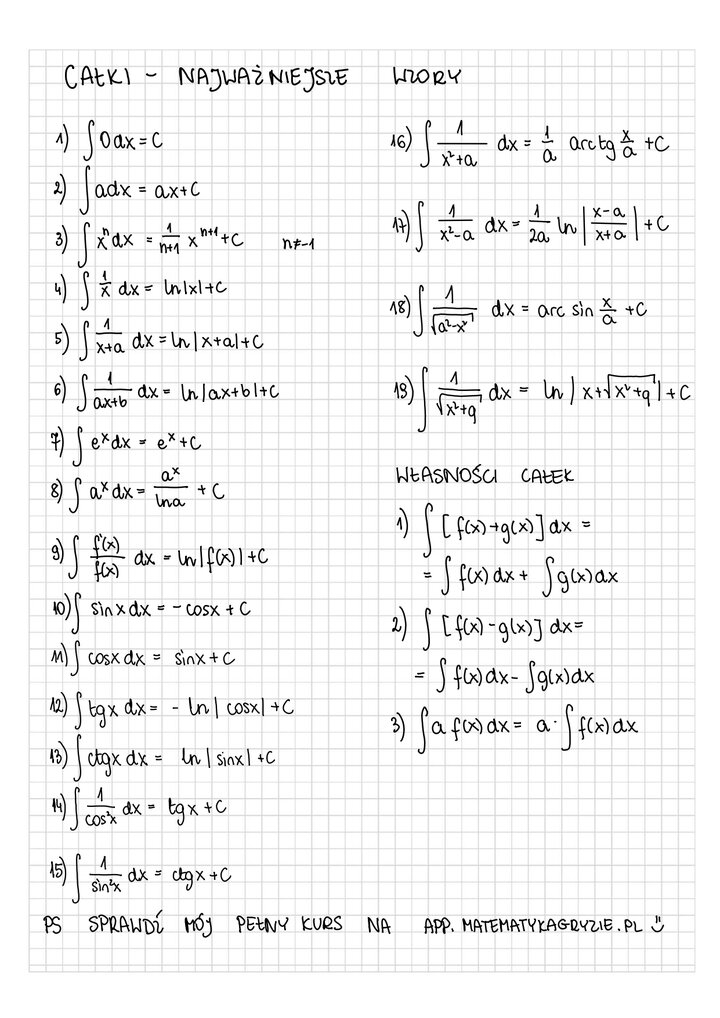 CAŁKI - NAJWAŻNIEJSZE WZORY
1) ∫ 0 dx = C
2) ∫ a dx = ax + C
3) ∫ xⁿ dx = 1/(n+1) xⁿ⁺¹ + C n ≠ -1
4) ∫ 1/x dx = ln|x| + C
5) ∫ 1/(x+a) dx = ln|x+a| + C
6) ∫ 1/(ax+b) dx = ln|ax+b| + C
7) ∫ eˣ dx = eˣ + C
8) ∫ aˣ dx = aˣ/(ln a) + C
9) ∫ f'(x)/f(x) dx = ln|f(x)| + C
10) ∫ sin x dx = - cos x + C
11) ∫ cos x dx = sin x + C
12) ∫ tg x dx = - ln|cos x| + C
13) ∫ ctg x dx = ln|sin x| + C
14) ∫ 1/(cos²x) dx = tg x + C
15) ∫ 1/(sin²x) dx = ctg x + C
16) ∫ 1/(x²+a) dx = 1/a arctg x/a + C
17) ∫ 1/(x²-a) dx = 1/(2a) ln|(x-a)/(x+a)| + C
18) ∫ 1/√(a²-x²) dx = arc sin x/a + C
19) ∫ 1/√(x²+q) dx = ln|x+√(x²+q)| + C
WŁASNOŚCI CAŁEK
1) ∫ [f(x)+g(x)] dx =
= ∫ f(x) dx + ∫ g(x) dx
2) ∫ [f(x)-g(x)] dx =
= ∫ f(x) dx - ∫ g(x) dx
3) ∫ a f(x) dx = a · ∫ f(x) dx
PS SPRAWDŹ MÓJ PEŁNY KURS NA APP.MATEMATYKAGRYZIE.PL :)